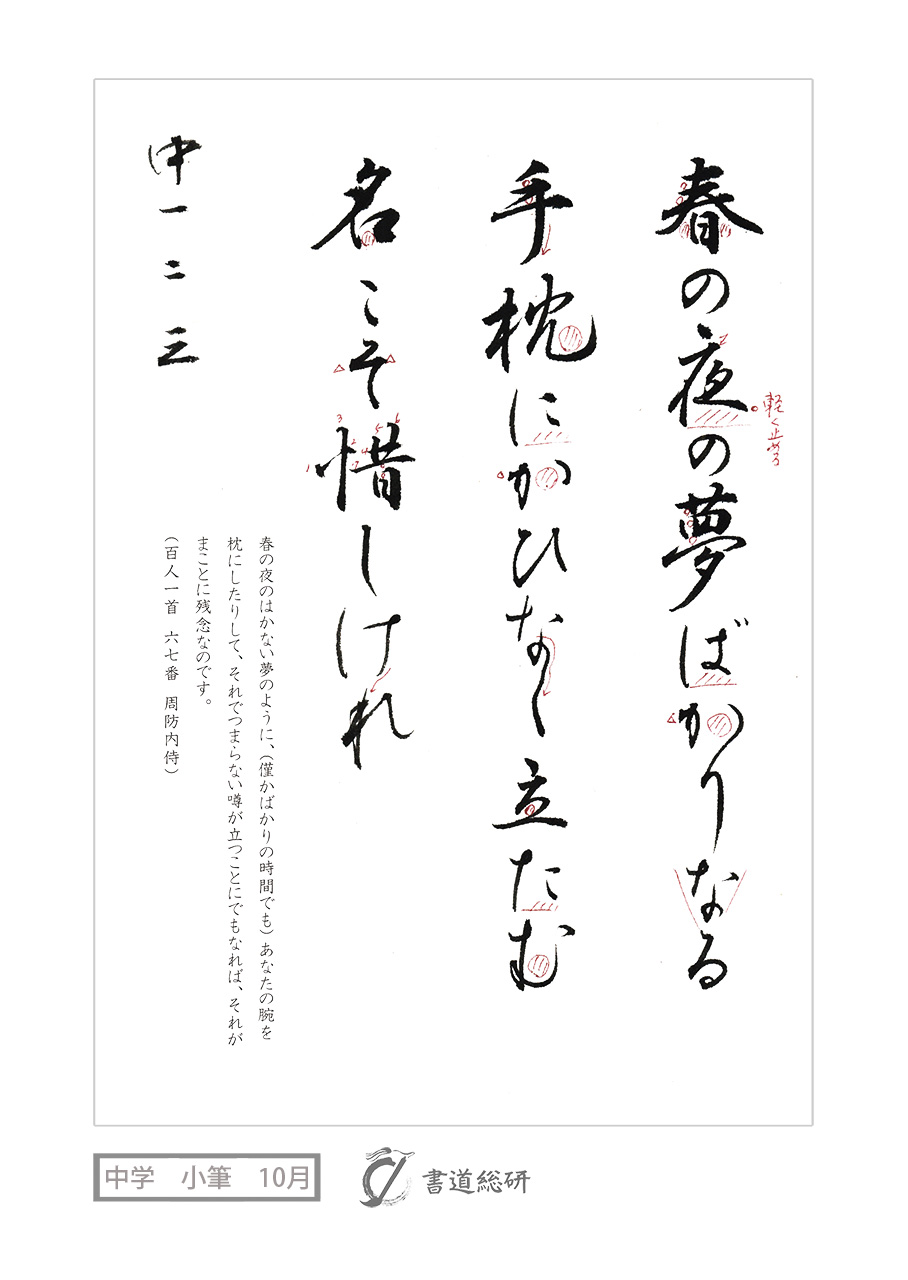 春の夜の夢ばかりなる
手枕にかひなく立たむ
名こそ惜しけれ
中一二三
軽く止める
春の夜のはかない夢のように、（僅かばかりの時間でも）あなたの腕を
枕にしたりして、それでつまらない噂が立つことにでもなれば、それが
まことに残念なのです。
（百人一首 六七番 周防内侍）
中学 小筆 10月
書道総研